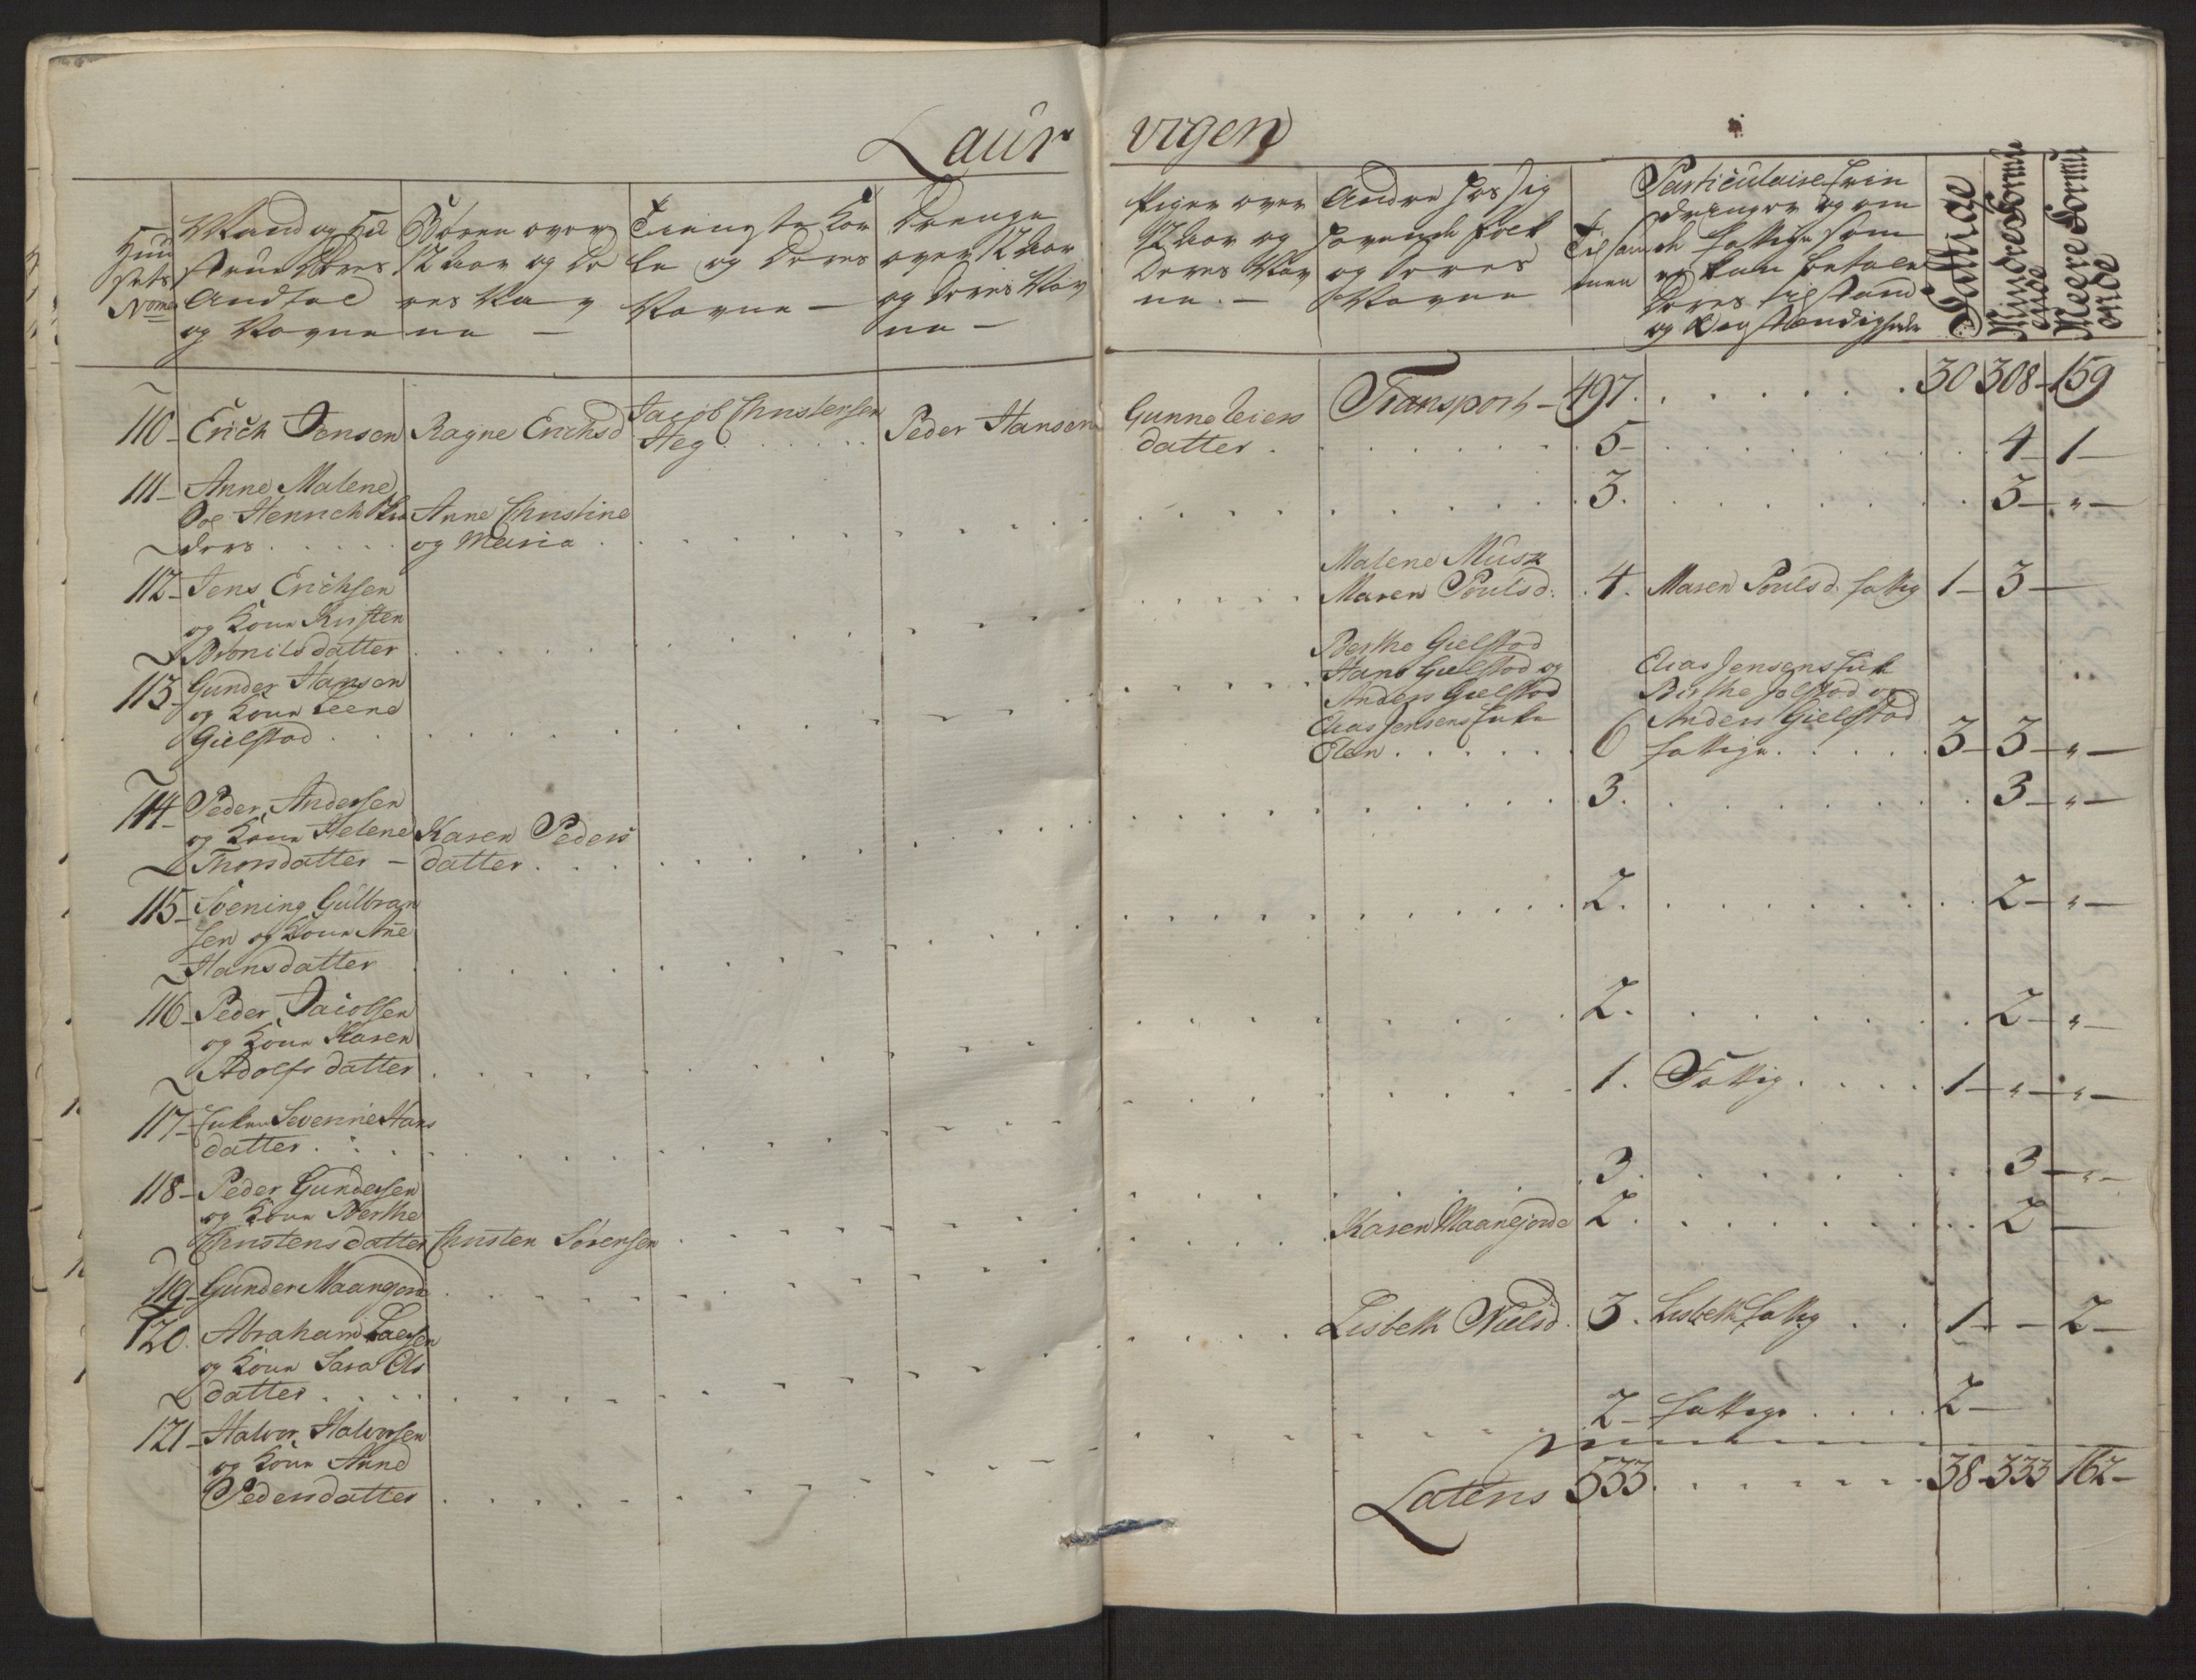 Laur
vigen
Huu
sets
Nomer
Mand og Hu
strue Deres
Andtal
og Navne
Børen over
12 Aar og De
res Nav
ne —
Tieneste Kar
le og Deres
Navne —
Drenge
over 12 Aar
og deres Nav
ne —
Piger over
12 Aar og
Deres Nav
ne. —
Andre hos sig
havende folk
og deres
Navne
Til sam
men
Particulaire
og om
de fattige som
ey kan betale
deres tilstand
og Omstændigheder
Fattige
Mindre Formu
ende
Meere Formu
ende
Transport – 497. 30 308 – 159
110 – Erich Jensen Ragne Erichsd Jacob Christensen
Heg Peder Hansen Gunne Leiers
datter . 5 – 4 – 1 –
111 – Anne Malene
Sal Henrich
ders Anne Christine
og Maria 3. 3 – „ –
112 – Jens Erichsen
og Kone Kirsten
Bronilsdatter Malene Musz
Maren Poulsd. 4. Maren Poulsd. fattig 1 – 3 –
113 – Gunder Hansen
og Kone Leene
Gielstad Berthe Gielstad
Hans Gielstad og
Anders Gielstad
Elias Jensens Enke
Elen 6 Elias Jensens Enke
Birthe Jelstad og
Anders Gielstad
fattige 3 – 3 – „ –
114 – Peder Andersen
og Kone Helene
Thorsdatter – Karen Peders
datter 3. 3 – „ –
115 – Svening Gulbran
sen og Kone Ane
Hansdatter 2. 2 – „ –
116 – Peder Jacobsen
og Kone Karen
Adolfs datter 2. 2 – „ –
117 – Enken Severine Hans
datter 1. Fattig 1 – „ – „ –
118 – Peder Gundersen
og Kone Berthe
Christens datter Christen Sørensen 3. 3 – „ –
119 – Gunder Maangord Karen Maanejorde 2. 2 –
120. Abraham Larsen
og Kone Sara Ols
datter Lisbeth Nielsd. 3. Lisbeth fattig 1 – – 2 –
121 – Halvor Halvorsen
og Kone Anne
Pedersdatter 2 – fattige 2 –
Latens 533. 38 – 333 162 –